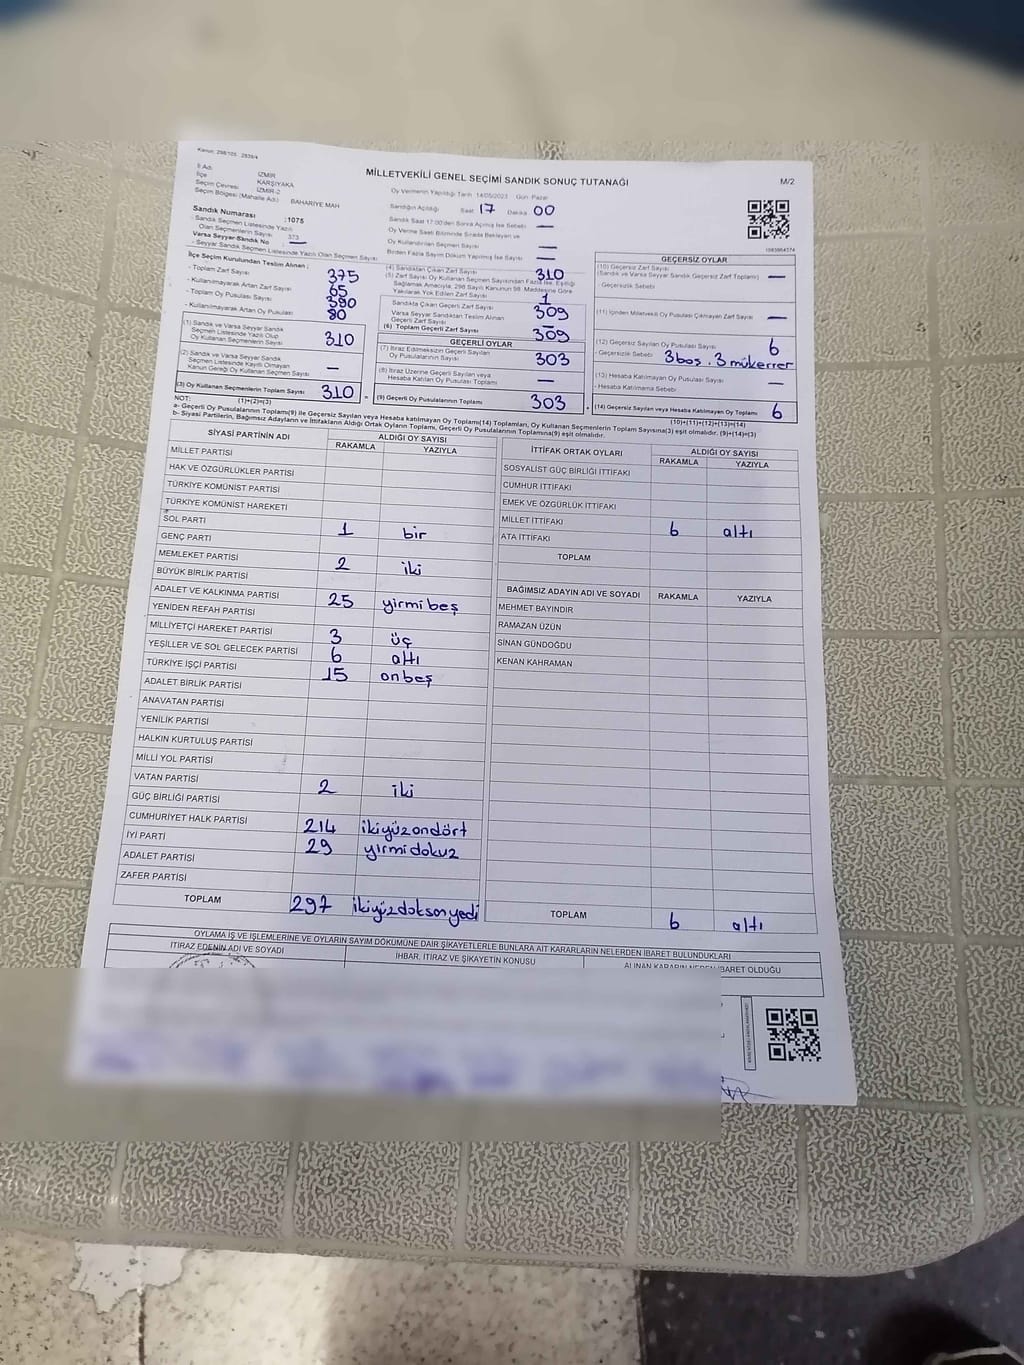 Kanun: 298/105 2839/4
MİLLETVEKİLİ GENEL SEÇİMİ SANDIK SONUÇ TUTANAĞI
M/2
İl Adı İZMİR
İlçe KARŞIYAKA
Seçim Çevresi İZMİR-2
Seçim Bölgesi (Mahalle Adı) BAHARİYE MAH
Oy Vermenin Yapıldığı Tarih 14/05/2023 Gün Pazar
Sandığın Açıldığı Saat 17 Dakika 00
Sandık Saat 17:00'den Sonra Açılmış İse Sebebi —
Oy Verme Saati Bitiminde Sırada Bekleyen ve
Oy Kullandırılan Seçmen Sayısı —
Birden Fazla Sayım Döküm Yapılmış İse Sayısı —
Sandık Numarası :1075
- Sandık Seçmen Listesinde Yazılı
Olan Seçmenlerin Sayısı 373
Varsa Seyyar Sandık No : —
- Seyyar Sandık Seçmen Listesinde Yazılı Olan Seçmen Sayısı
İlçe Seçim Kurulundan Teslim Alınan :
- Toplam Zarf Sayısı 375
- Kullanılmayarak Artan Zarf Sayısı 65
- Toplam Oy Pusulası Sayısı 390
- Kullanılmayarak Artan Oy Pusulası 80
(1) Sandık ve Varsa Seyyar Sandık
Seçmen Listesinde Yazılı Olup
Oy Kullanan Seçmenlerin Sayısı 310
(2) Sandık ve Varsa Seyyar Sandık
Seçmen Listesinde Kayıtlı Olmayan
Kanun Gereği Oy Kullanan Seçmen Sayısı —
(3) Oy Kullanan Seçmenlerin Toplam Sayısı 310
(1)+(2)=(3)
(4) Sandıktan Çıkan Zarf Sayısı 310
(5) Zarf Sayısı Oy Kullanan Seçmen Sayısından Fazla İse, Eşitliği
Sağlamak Amacıyla, 298 Sayılı Kanunun 98. Maddesine Göre
Yakılarak Yok Edilen Zarf Sayısı 1
Sandıkta Çıkan Geçerli Zarf Sayısı 309
Varsa Seyyar Sandıktan Teslim Alınan
Geçerli Zarf Sayısı —
(6) Toplam Geçerli Zarf Sayısı 309
GEÇERLİ OYLAR
(7) İtiraz Edilmeksizin Geçerli Sayılan
Oy Pusulalarının Sayısı 303
(8) İtiraz Üzerine Geçerli Sayılan veya
Hesaba Katılan Oy Pusulası Toplamı —
(9) Geçerli Oy Pusulalarının Toplamı 303
GEÇERSİZ OYLAR
(10) Geçersiz Zarf Sayısı
(Sandık ve Varsa Seyyar Sandık Geçersiz Zarf Toplamı) —
- Geçersizlik Sebebi
(11) İçinden Milletvekili Oy Pusulası Çıkmayan Zarf Sayısı —
(12) Geçersiz Sayılan Oy Pusulası Sayısı 6
- Geçersizlik Sebebi 3 boş . 3 mükerrer
(13) Hesaba Katılmayan Oy Pusulası Sayısı —
- Hesaba Katılmama Sebebi
(14) Geçersiz Sayılan veya Hesaba Katılmayan Oy Toplamı 6
(10)+(11)+(12)+(13)=(14)
NOT:
a- Geçerli Oy Pusulalarının Toplamı(9) ile Geçersiz Sayılan veya Hesaba katılmayan Oy Toplamı(14) Toplamları, Oy Kullanan Seçmenlerin Toplam Sayısına(3) eşit olmalıdır. (9)+(14)=(3)
b- Siyasi Partilerin, Bağımsız Adayların ve İttifakların Aldığı Ortak Oyların Toplamı, Geçerli Oy Pusulalarının Toplamına(9) eşit olmalıdır.
SİYASİ PARTİNİN ADI ALDIĞI OY SAYISI
RAKAMLA YAZIYLA
MİLLET PARTİSİ
HAK VE ÖZGÜRLÜKLER PARTİSİ
TÜRKİYE KOMÜNİST PARTİSİ
TÜRKİYE KOMÜNİST HAREKETİ
SOL PARTİ 1 bir
GENÇ PARTİ
MEMLEKET PARTİSİ 2 iki
BÜYÜK BİRLİK PARTİSİ
ADALET VE KALKINMA PARTİSİ 25 yirmi beş
YENİDEN REFAH PARTİSİ
MİLLİYETÇİ HAREKET PARTİSİ 3 üç
YEŞİLLER VE SOL GELECEK PARTİSİ 6 altı
TÜRKİYE İŞÇİ PARTİSİ 15 onbeş
ADALET BİRLİK PARTİSİ
ANAVATAN PARTİSİ
YENİLİK PARTİSİ
HALKIN KURTULUŞ PARTİSİ
MİLLİ YOL PARTİSİ
VATAN PARTİSİ 2 iki
GÜÇ BİRLİĞİ PARTİSİ
CUMHURİYET HALK PARTİSİ 214 ikiyüzondört
İYİ PARTİ 29 yirmidokuz
ADALET PARTİSİ
ZAFER PARTİSİ
TOPLAM 297 ikiyüzdoksanyedi
İTTİFAK ORTAK OYLARI ALDIĞI OY SAYISI
RAKAMLA YAZIYLA
SOSYALİST GÜÇ BİRLİĞİ İTTİFAKI
CUMHUR İTTİFAKI
EMEK VE ÖZGÜRLÜK İTTİFAKI
MİLLET İTTİFAKI 6 altı
ATA İTTİFAKI
TOPLAM
BAĞIMSIZ ADAYIN ADI VE SOYADI RAKAMLA YAZIYLA
MEHMET BAYINDIR
RAMAZAN ÜZÜN
SİNAN GÜNDOĞDU
KENAN KAHRAMAN
TOPLAM 6 altı
OYLAMA İŞ VE İŞLEMLERİNE VE OYLARIN SAYIM DÖKÜMÜNE DAİR ŞİKAYETLERLE BUNLARA AİT KARARLARIN NELERDEN İBARET BULUNDUKLARI
İTİRAZ EDENİN ADI VE SOYADI
İHBAR, İTİRAZ VE ŞİKAYETİN KONUSU
ALINAN KARARIN NEDEN İBARET OLDUĞU